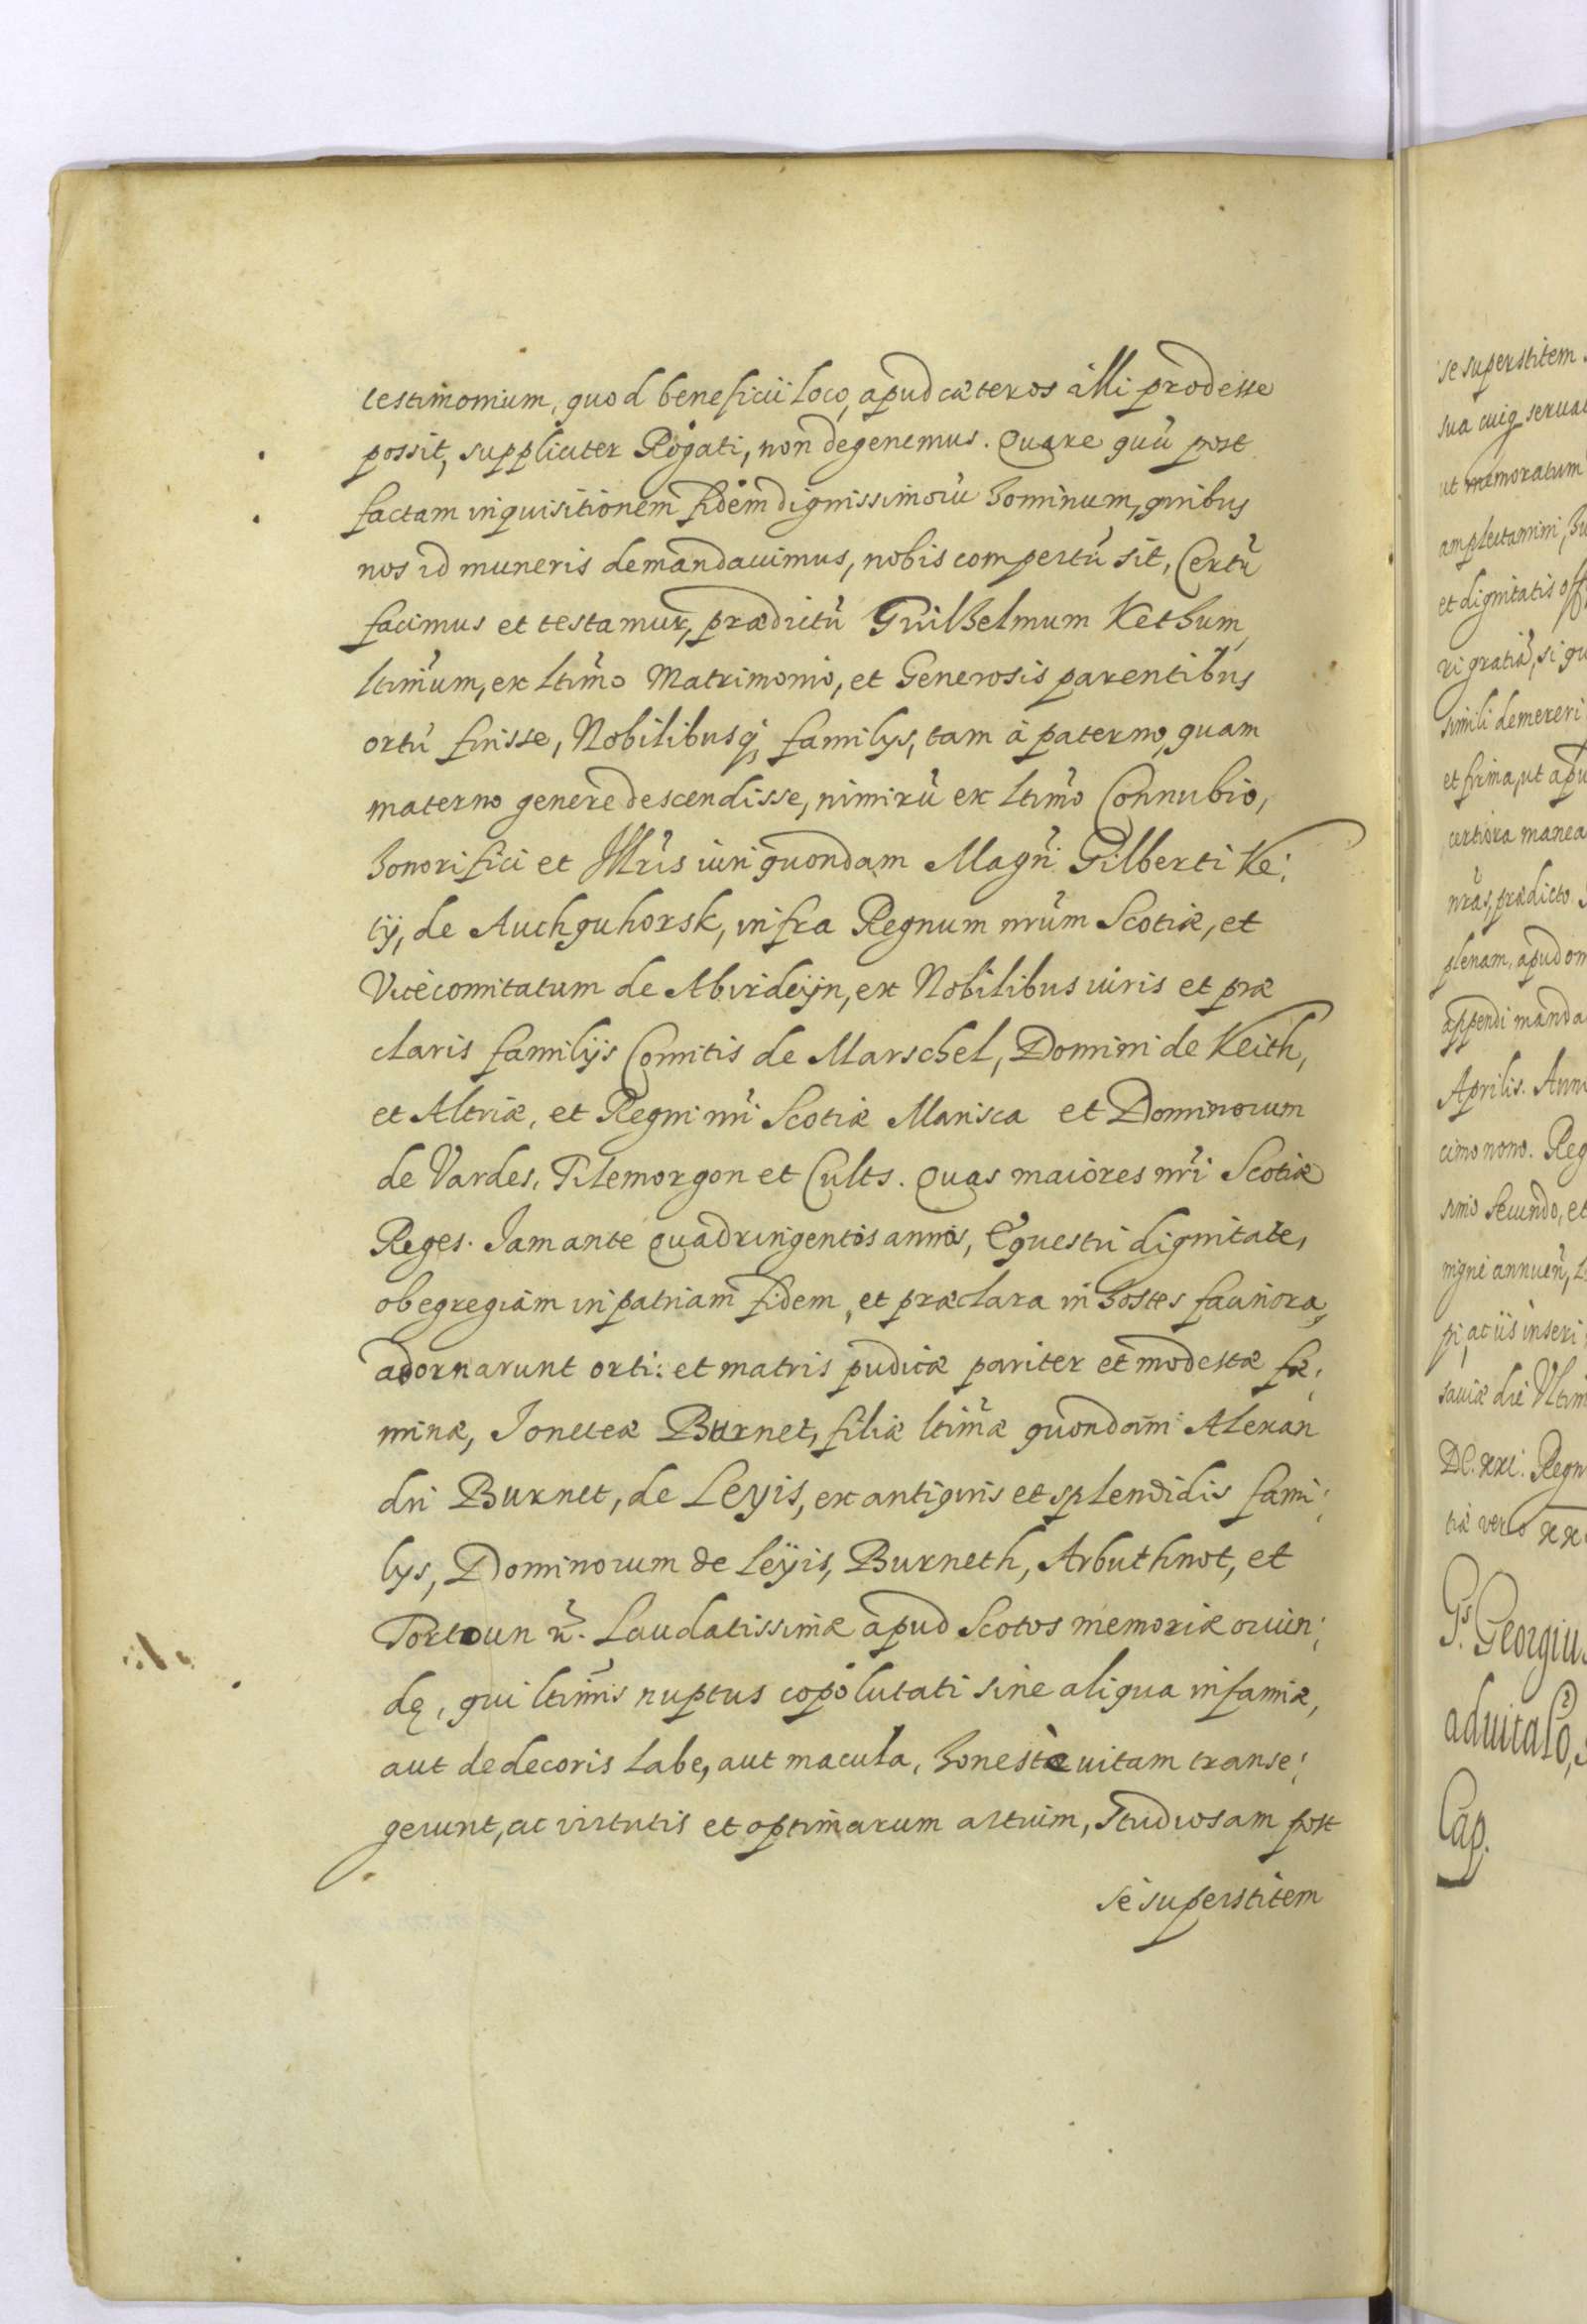 testimonium, quod beneficii loco, apud cæteros illi prodesse
possit, suppliciter Rogati, non degenemus. Quare quū post
factam inquisitionem fidem dignissimorū hominum, quibus
nos id muneris demandauimus, nobis compertū sit, Certū
facimus et testamur, prædictū Guilhelmum Kethum,
ltim̄um, ex ltim̄o Matrimonio, et Generosis parentibus
ortū fuisse, Nobilibusq; familijs, tam à paterno, quam
materno genere descendisse, nimirū ex ltim̄o Connubio,
honorifici et Illr̄is uiri quondam Magn̄i Gilberti Ke:
tij, de Auchquhorsk, infra Regnum nr̄um Scotiæ, et
Vicecomitatum de Abirdeijn, ex Nobilibus uiris et præ
claris familijs Comitis de Marschel, Domini de Keith,
et Altriæ, et Regni nr̄i Scotiæ Marisca et Dominorum
de Vardes, Tilemorgon et Cults. Quas maiores nr̄i Scotiæ
Reges. Jam ante quadringentos annos, Equestri dignitate,
ob egregiam in patriam fidem, et præclara in hostes facinora,
adornarunt orti: et matris pudicæ pariter et modestæ fæ:
minæ, Joneteæ Burnet, filiæ ltim̄æ quondam Alexan
dri Burnet, de Leyis, ex antiquis et splendidis fami:
lijs, Dominorum de Leÿis, Burneth, Arbuthnot, et
Tortoun n̄. Laudatissimæ apud Scotos memoriæ oriun:
dę, qui ltim̄is nuptus copolutati sine aliqua infamiæ,
aut dedecoris labe, aut macula, honestè uitam transe:
gerunt, ac virtutis et optimarum artium, studiosam post
se superstitem
se superstitem
sua cuiq seruat
ut memoratum
amplectamini,
et dignitatis off
ri gratiā, si qu
simili demereri
et firma, ut apu
certiora manea
nr̄as, prædicto
plenam, apud om
appendi manda
Aprilis. Anni
cimo nono. Reg
simo secundo, et
nigne annuen̄,
pi, ac iis inseri
sauiæ die Vltim
DC.XXI. Regn
tiæ vero XX
Gs. Georgius
Cap.